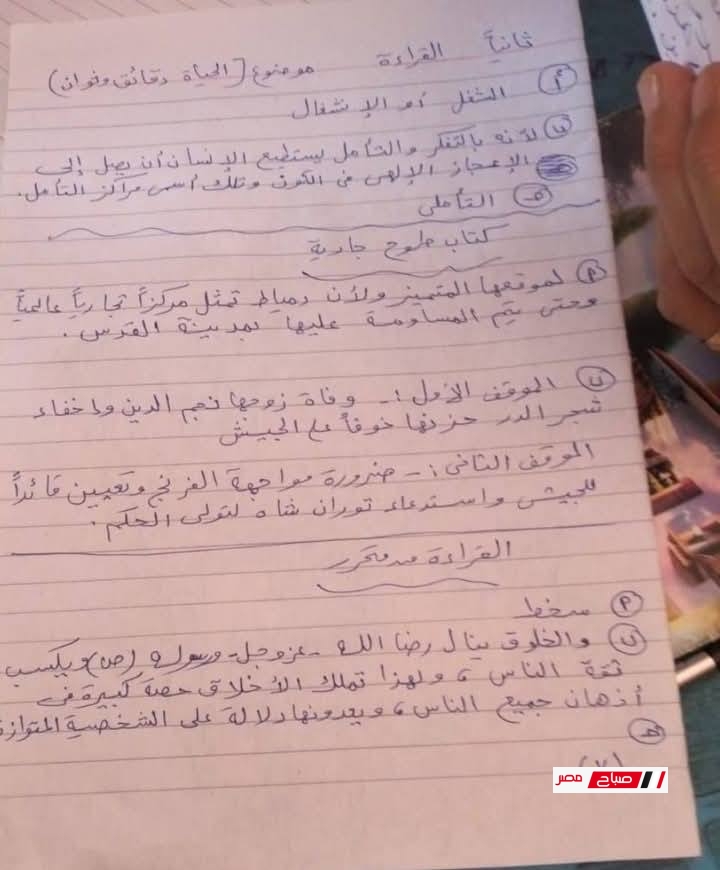 ثانياً القراءة موضوع (الحياة دقائق وثوان)
أ الشغل أو الإنشغال
ب لأنه بالتفكر والتأمل يستطيع الإنسان أن يصل إلى
الإعجاز الإلهى فى الكون وتلك أسمى مراكز التأمل.
جـ التأملى
كتاب طموح جارية
أ لموقعها المتميز ولأن دمياط تمثل مركزاً تجارياً عالمياً
وحتى يتم المساومة عليها بمدينة القدس.
ب الموقف الأول :- وفاة زوجها نجم الدين وإخفاء
شجر الدر حزنها خوفاً على الجيش
الموقف الثانى :- ضرورة مواجهة الفرنج وتعيين قائداً
للجيش واستدعاء توران شاه لتولى الحكم.
القراءة متحرر
أ سخط
ب والخلوق ينال رضا الله - عزوجل - ورسوله (ص) ويكسب
ثقة الناس، ولهذا تملك الأخلاق حصة كبيرة فى
أذهان جميع الناس، ويعدونها دلالة على الشخصية المتوازنة
جـ
(٧)
صباح مصر